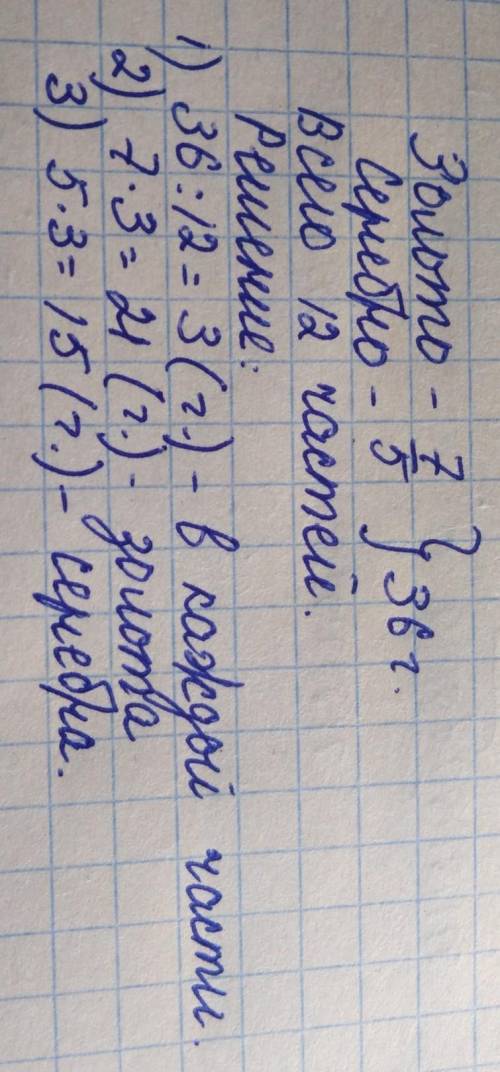 Золото - 7
Серебро - 5 } 36 г.
Всего 12 частей.
Решение:
1) 36:12 = 3 (г.) - в каждый части.
2) 7·3 = 21 (г.) - золота
3) 5·3 = 15 (г.) - серебра.